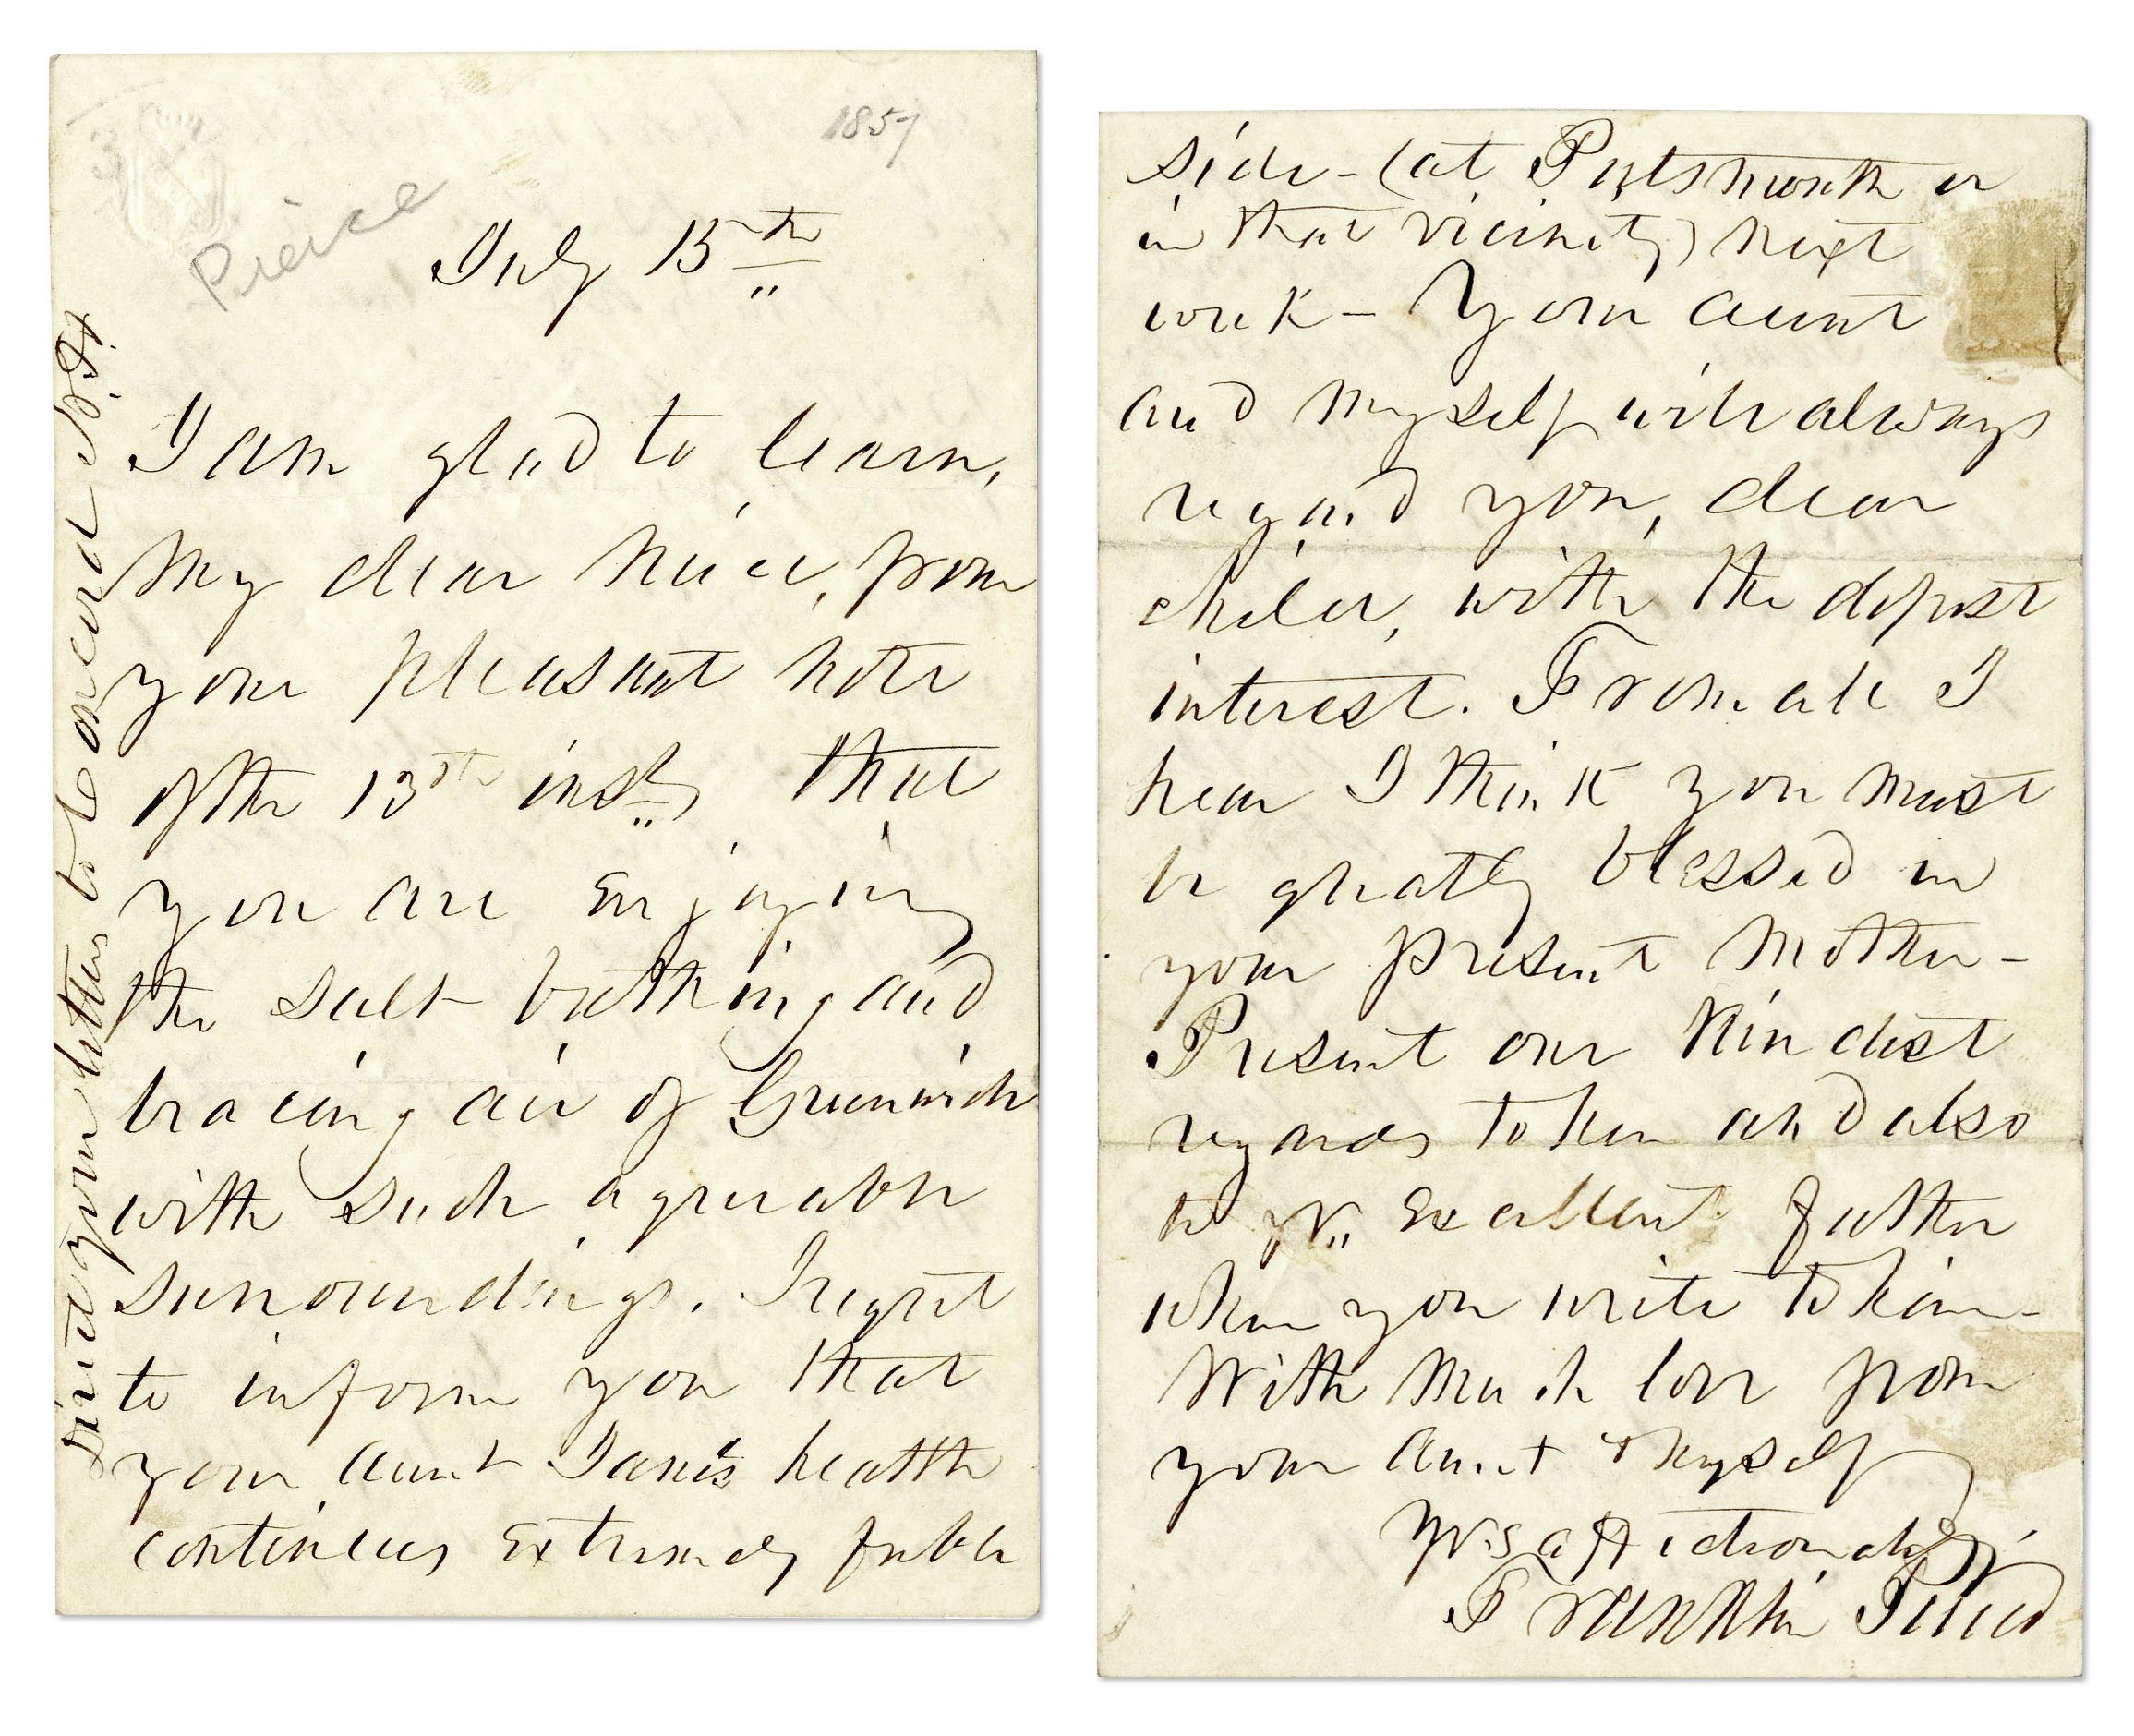 1857
Pierce
July 15th
I am glad to learn,
my dear niece, from
your pleasant note
of the 13th inst, that
you are enjoying
the salt bathing and
bracing air of Greenwich
with such agreeable
surroundings. I regret
to inform you that
your aunt Jane's health
continues extremely feeble
Direct your letters to Concord N.H.
side - (at Portsmouth or
in that vicinity) next
week - Your aunt
and myself will always
regard you, dear
child, with the deepest
interest. From all I
hear I think you must
be greatly blessed in
your present mother -
Present our kindest
regards to her and also
to yr. excellent father
when you write to him -
With much love from
your aunt & myself
Yrs affectionately,
Franklin Pierce